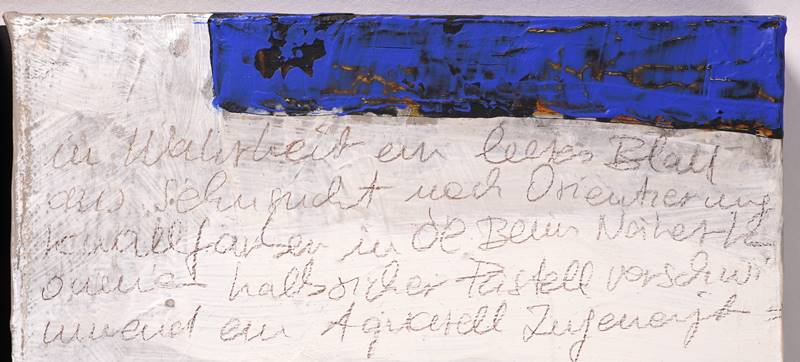 in Wahrheit ein leeres Blatt
aus Sehnsucht nach Orientierung
Knallfarben in Öl Beim Näherk
ommen halbsicher Pastell verschwi
mmend ein Aquarell Zugeneigt =